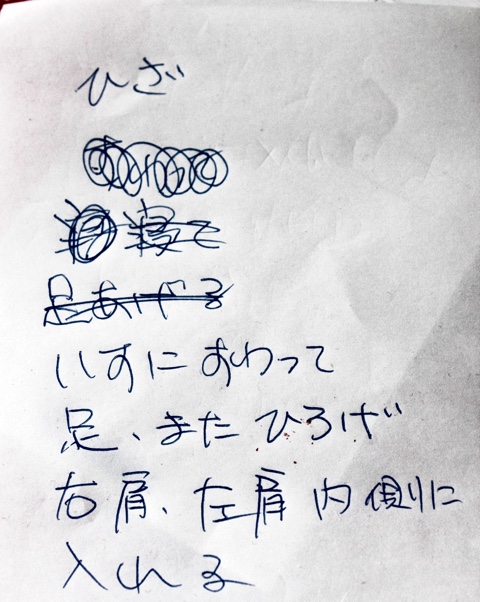 ひざ
寝て
足あげる
いすにすわって
足、またひろげ
右肩、左肩内側に
入れる